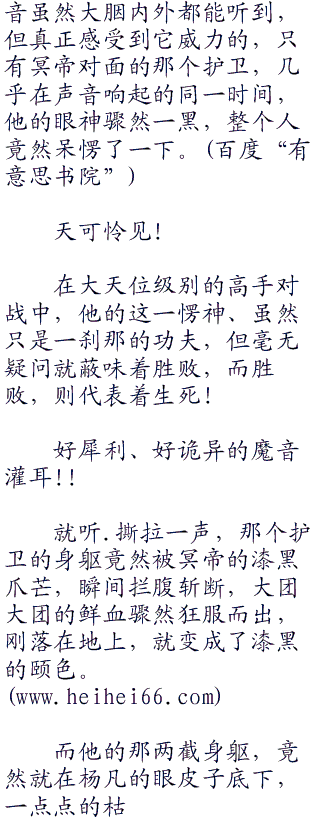 音虽然大胭内外都能听到，
但真正感受到它威力的，只
有冥帝对面的那个护卫，几
乎在声音响起的同一时间，
他的眼神骤然一黑，整个人
竟然呆愣了一下。(百度“有
意思书院”)
天可怜见!
在大天位级别的高手对
战中，他的这一愣神、虽然
只是一刹那的功夫，但毫无
疑问就蔽味着胜败，而胜
败，则代表着生死!
好犀利、好诡异的魔音
灌耳!!
就听.撕拉一声，那个护
卫的身躯竟然被冥帝的漆黑
爪芒，瞬间拦腹斩断，大团
大团的鲜血骤然狂服而出，
刚落在地上，就变成了漆黑
的颐色。
(www.heihei66.com)
而他的那两截身躯，竟
然就在杨凡的眼皮子底下，
一点点的枯